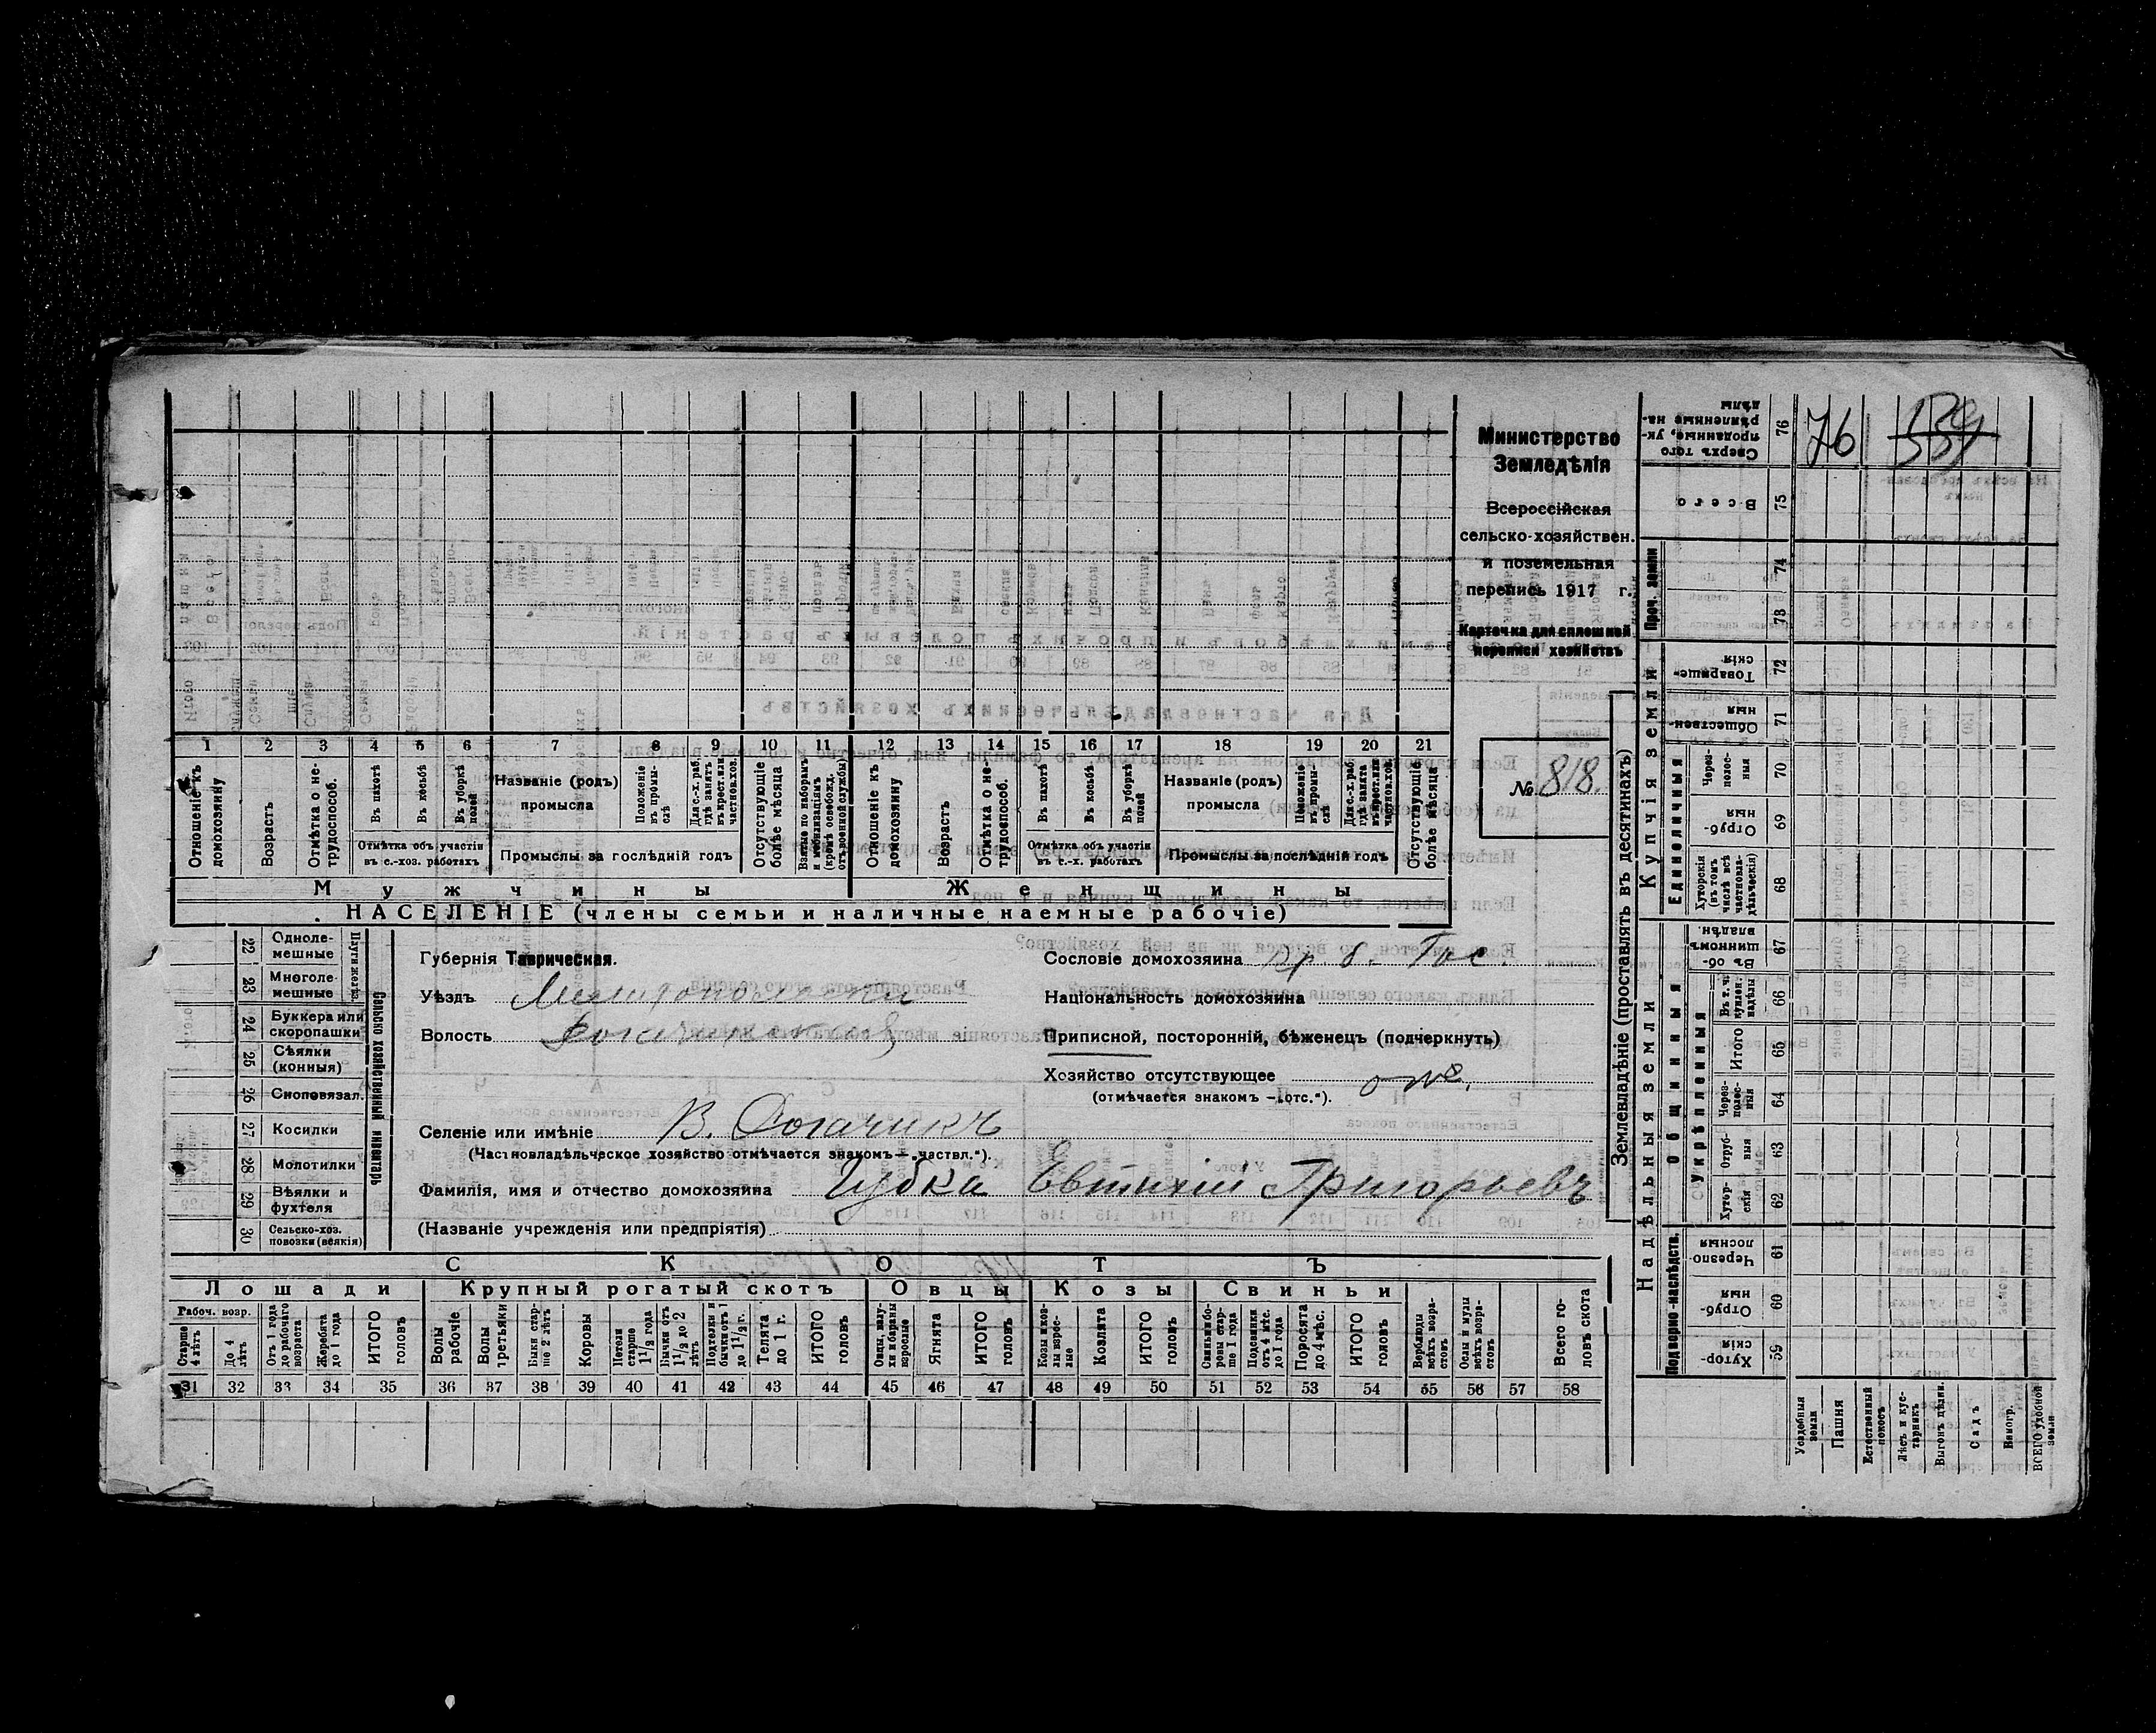 Министерство
Земледѣлія
Всероссійская
сельско-хозяйствен.
и поземельная
перепись 1917 г.
Карточка для сплошной
переписи хозяйствъ
№ 818.
76
1 2 3 4 5 6 7 8 9 10 11 12 13 14 15 16 17 18 19 20 21
Отношеніе къ домохозяину
Возрастъ
Отмѣтка о не-трудоспособ.
Въ пахотѣ
Въ косьбѣ
Въ уборкѣ полей
Отмѣтка объ участіи въ с.-хоз. работахъ
Названіе (родъ) промысла
Положеніе въ промы-слѣ
Для с.-х. раб. гдѣ занятъ въ крест. или частнов. хоз.
Промыслы за послѣдній годъ
Отсутствующіе болѣе мѣсяца
Взятые по наборамъ и мобилизаціямъ (кромѣ освобожд. отъ военной службы)
Отношеніе къ домохозяину
Возрастъ
Отмѣтка о не-трудоспособ.
Въ пахотѣ
Въ косьбѣ
Въ уборкѣ полей
Отмѣтка объ участіи въ с.-х. работахъ
Названіе (родъ) промысла
Положеніе въ промы-слѣ
Для с.-х. раб. гдѣ занята въ крест. или частнов. хоз.
Промыслы за послѣдній годъ
Отсутствующіе болѣе мѣсяца
Мужчины Женщины
НАСЕЛЕНІЕ (члены семьи и наличные наемные рабочіе)
Сельско хозяйственный инвентарь
22 Одноле-мешные
23 Многоле-мешные
24 Буккера или скоропашки
25 Сѣялки (конныя)
26 Сноповязал.
27 Косилки
28 Молотилки
29 Вѣялки и фухтеля
30 Сельско-хоз. повозки (всякія)
Губернія Таврическая.
Уѣздъ
Волость
Селеніе или имѣніе В. Рогачикъ
(Частновладѣльческое хозяйство отмѣчается знакомъ — „частвл.“).
Фамилія, имя и отчество домохозяина Губка Евтихій Григорьевъ
(Названіе учрежденія или предпріятія)
Сословіе домохозяина
Національность домохозяина
Приписной, посторонній, бѣженецъ (подчеркнуть)
Хозяйство отсутствующее отс.
(отмѣчается знакомъ — „отс.“).
СКОТЪ
Лошади Крупный рогатый скотъ Овцы Козы Свиньи
Рабоч. возр.
Старше 4 лѣтъ
До 4 лѣтъ
Отъ 1 года до рабочаго возраста
Жеребята до 1 года
ИТОГО головъ
Волы рабочіе
Волы третьяки
Быки стар-ше 2 лѣтъ
Коровы
Нетели старше 1½ года
Бычки отъ 1½ до 2 лѣтъ
Подтелки и бычки отъ 1 до 1½ г.
Телята до 1 г.
ИТОГО головъ
Овцы, валу-хи и бараны взрослые
Ягнята
ИТОГО головъ
Козы и коз-лы взрос-лые
Козлята
ИТОГО головъ
Свиньи и бо-ровы стар-ше 1 года
Подсвинки отъ 4 мѣс. до 1 года
Поросята до 4 мѣс.
ИТОГО головъ
Верблюды всѣхъ возра-стовъ
Ослы и мулы всѣхъ возра-стовъ
Всего го-ловъ скота
31 32 33 34 35 36 37 38 39 40 41 42 43 44 45 46 47 48 49 50 51 52 53 54 55 56 57 58
Землевладѣніе (проставлять въ десятинахъ)
Купчія земли
Надѣльныя земли
Сверхъ того проданные, ук-рѣпленные на-дѣлы 76
Всего 75
Проч. земли 74 73
Товарище-скія 72
Обществен-ныя 71
Единоличныя
Через-полос-ныя 70
Отруб-ныя 69
Хуторскія (въ томъ числѣ всѣ частновла-дѣльческія) 68
Общинныя
Въ об-щинномъ владѣн. 67
Укрѣпленныя
Въ т. ч. куплен. надѣлы 66
Итого 65
Через-полос-ныя 64
Отруб-ныя 63
Хутор-скія 62
Подворно-наслѣдств.
Черезпо-лосныя 61
Отруб-ныя 60
Хутор-скія 59
Усадебныя земли
Пашня
Естественный покосъ
Лѣсъ и кус-тарникъ
Выгонъ дѣлян.
Садъ
Виногр.
ВСЕГО удобной земли